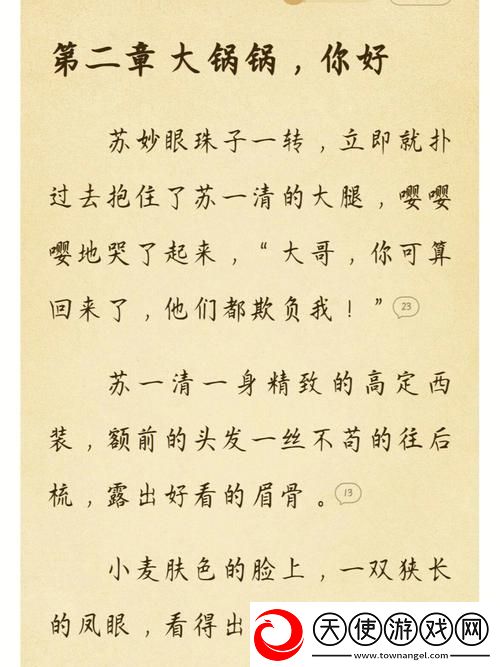 第二章 大锅锅，你好
苏妙眼珠子一转，立即就扑
过去抱住了苏一清的大腿，嘤嘤
嘤地哭了起来，“大哥，你可算
回来了，他们都欺负我！” 23
苏一清一身精致的高定西
装，额前的头发一丝不苟的往后
梳，露出好看的眉骨。 13
小麦肤色的脸上，一双狭长
的凤眼，看得出
天使游戏网
www.townangel.com